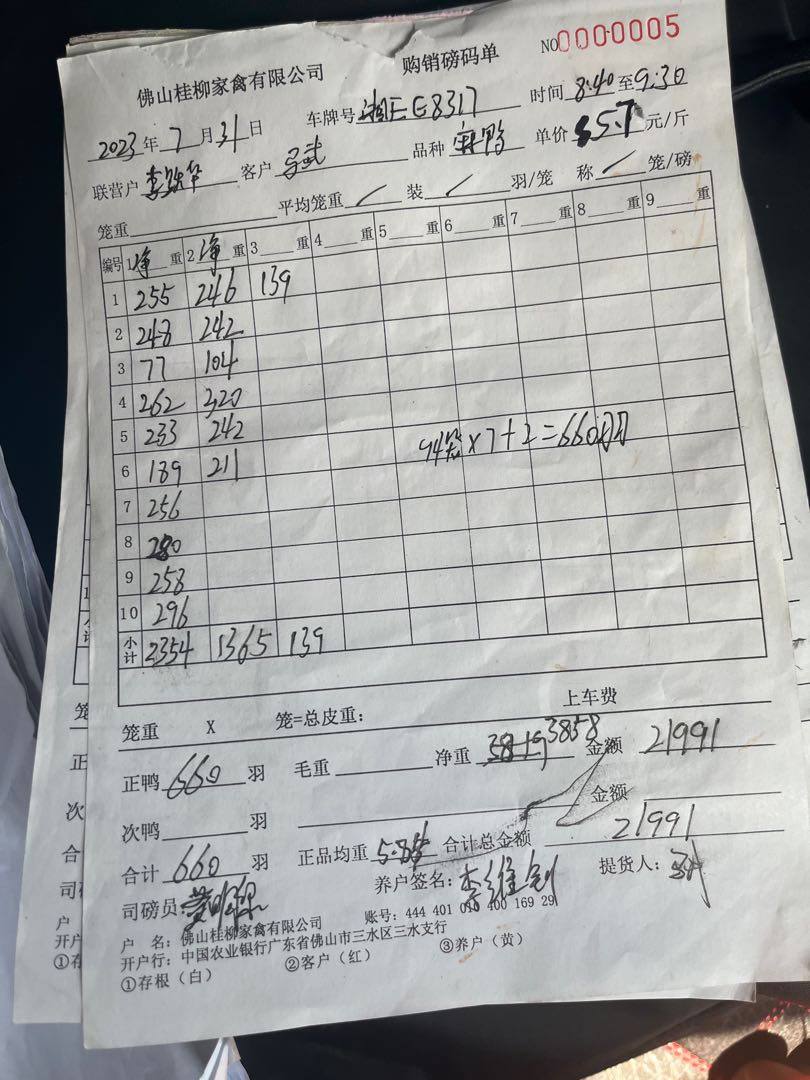 佛山桂柳家禽有限公司 购销磅码单 NO0000005
2023年7月31日 车牌号 湘EE8317 时间 8:40至9:30
联营户 客户 品种 麻鸭 单价 5.7元/斤
笼重 平均笼重 / 装 / 羽/笼 称 / 笼/磅
编号 1净重 2净重 3 重 4 重 5 重 6 重 7 重 8 重 9 重
1 255 246 139
2 248 242
3 77 104
4 262 320
5 233 242
6 189 211
94笼×7+2=660羽
7 256
8 280
9 258
10 296
小计 2354 1365 139
上车费
笼重 X 笼=总皮重:
正鸭 660 羽 毛重 净重 3819 3858 金额 21991
次鸭 羽 金额
合计 660 羽 正品均重 合计总金额 21991
司磅员: 养户签名: 提货人:
户 名: 佛山桂柳家禽有限公司 账号: 444 401 010 400 169 29
开户行: 中国农业银行广东省佛山市三水区三水支行
①存根(白) ②客户(红) ③养户(黄)